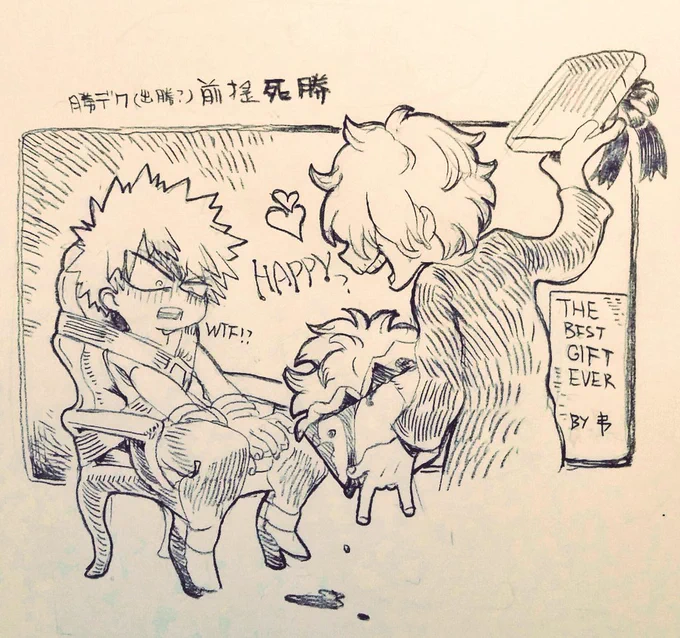 勝デク(出勝?)前提死勝
HAPPY?
WTF!?
THE
BEST
GIFT
EVER
BY 弔